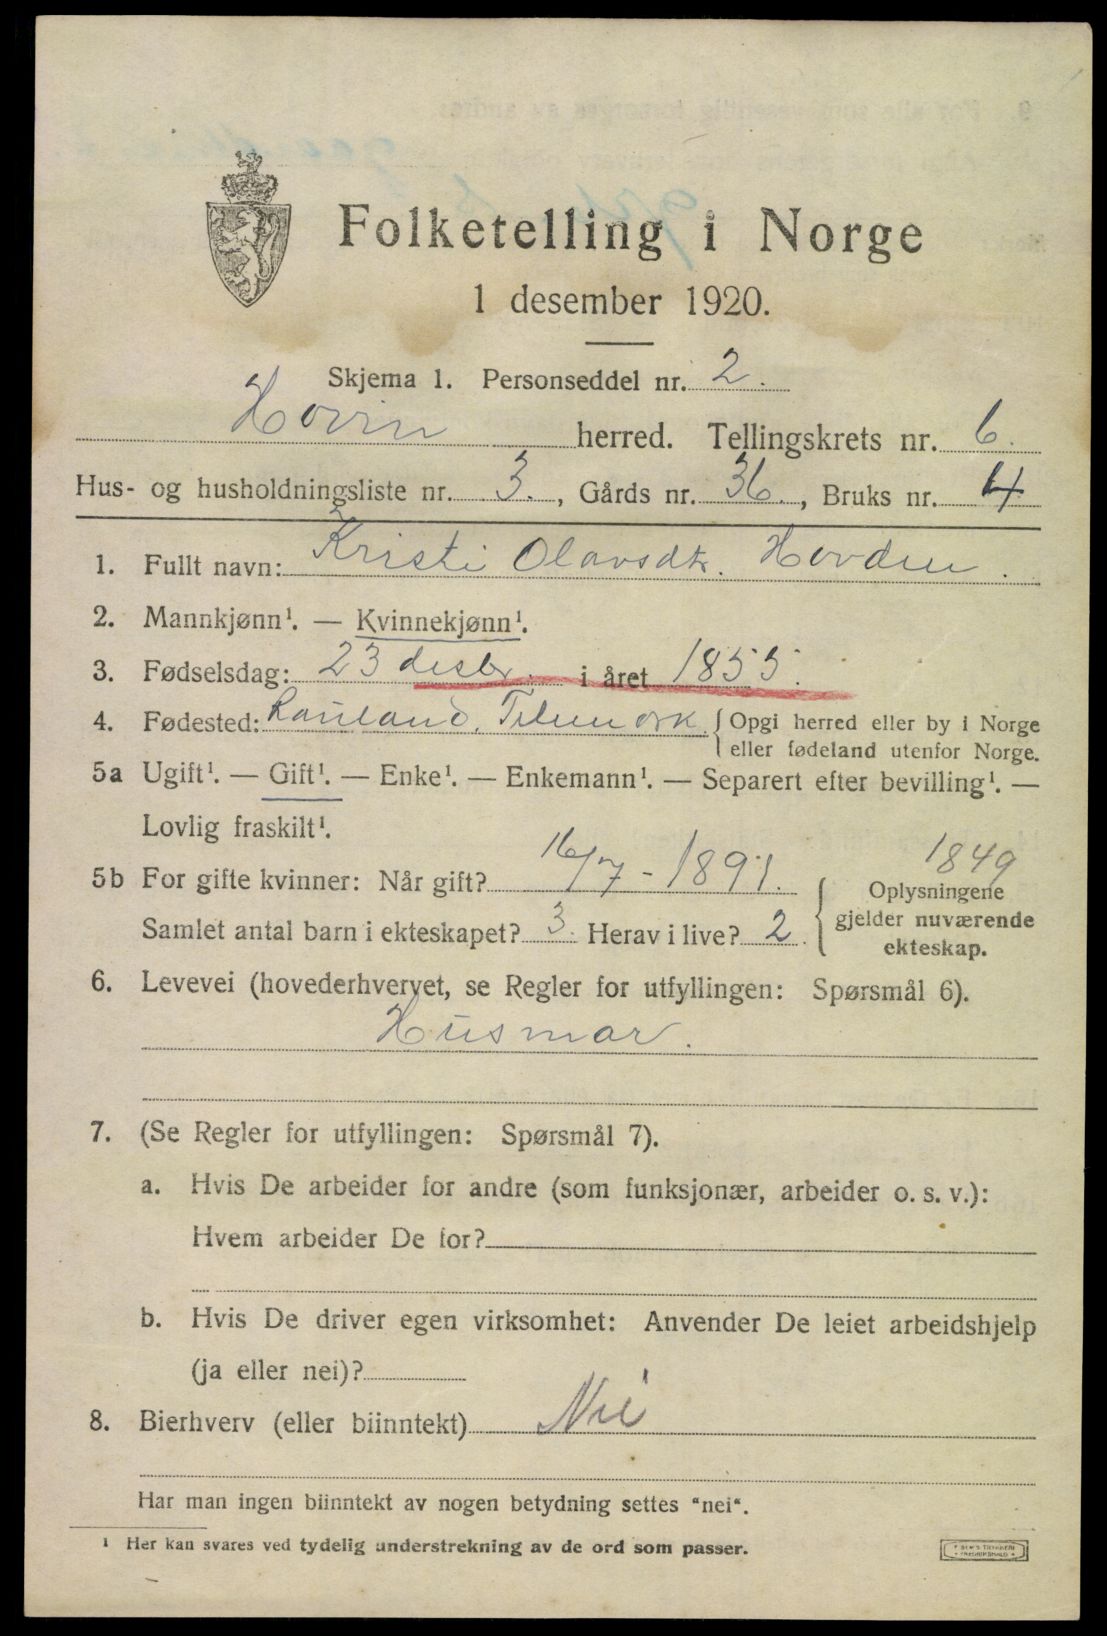 Folketelling i Norge
1 desember 1920.
Skjema 1. Personseddel nr. 2.
Hovin herred. Tellingskrets nr. 6.
Hus- og husholdningsliste nr. 3., Gårds nr. 36., Bruks nr. 4
1. Fullt navn: Kristi Olavsdtr. Hovden.
2. Mannkjønn¹. — Kvinnekjønn¹.
3. Fødselsdag: 23 desbr. i året 1855.
4. Fødested: Rauland, Telemork. { Opgi herred eller by i Norge
eller fødeland utenfor Norge.
5a Ugift¹. — Gift¹. — Enke¹. — Enkemann¹. — Separert efter bevilling¹. —
Lovlig fraskilt¹.
1849
5b For gifte kvinner: Når gift? 16/7 - 1891. { Oplysningene
gjelder nuværende
ekteskap.
Samlet antal barn i ekteskapet? 3. Herav i live? 2.
6. Levevei (hovederhvervet, se Regler for utfyllingen: Spørsmål 6).
Husmor.
7. (Se Regler for utfyllingen: Spørsmål 7).
a. Hvis De arbeider for andre (som funksjonær, arbeider o. s. v.):
Hvem arbeider De for?
b. Hvis De driver egen virksomhet: Anvender De leiet arbeidshjelp
(ja eller nei)?
8. Bierhverv (eller biinntekt) Nei
Har man ingen biinntekt av nogen betydning settes "nei".
¹ Her kan svares ved tydelig understrekning av de ord som passer.